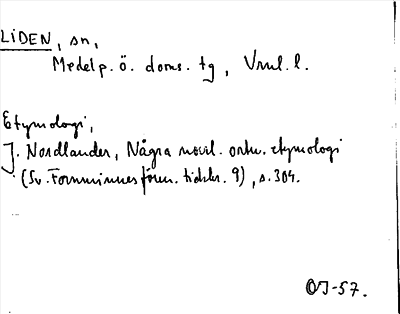 LIDEN, sn,
Medelp. ö. doms. tg, Vnl. l.
Etymologi,
J. Nordlander, Några norrl. ortn. etymologi
(Sv. Fornminnesfören. tidskr. 9), s. 304.
OJ-57.